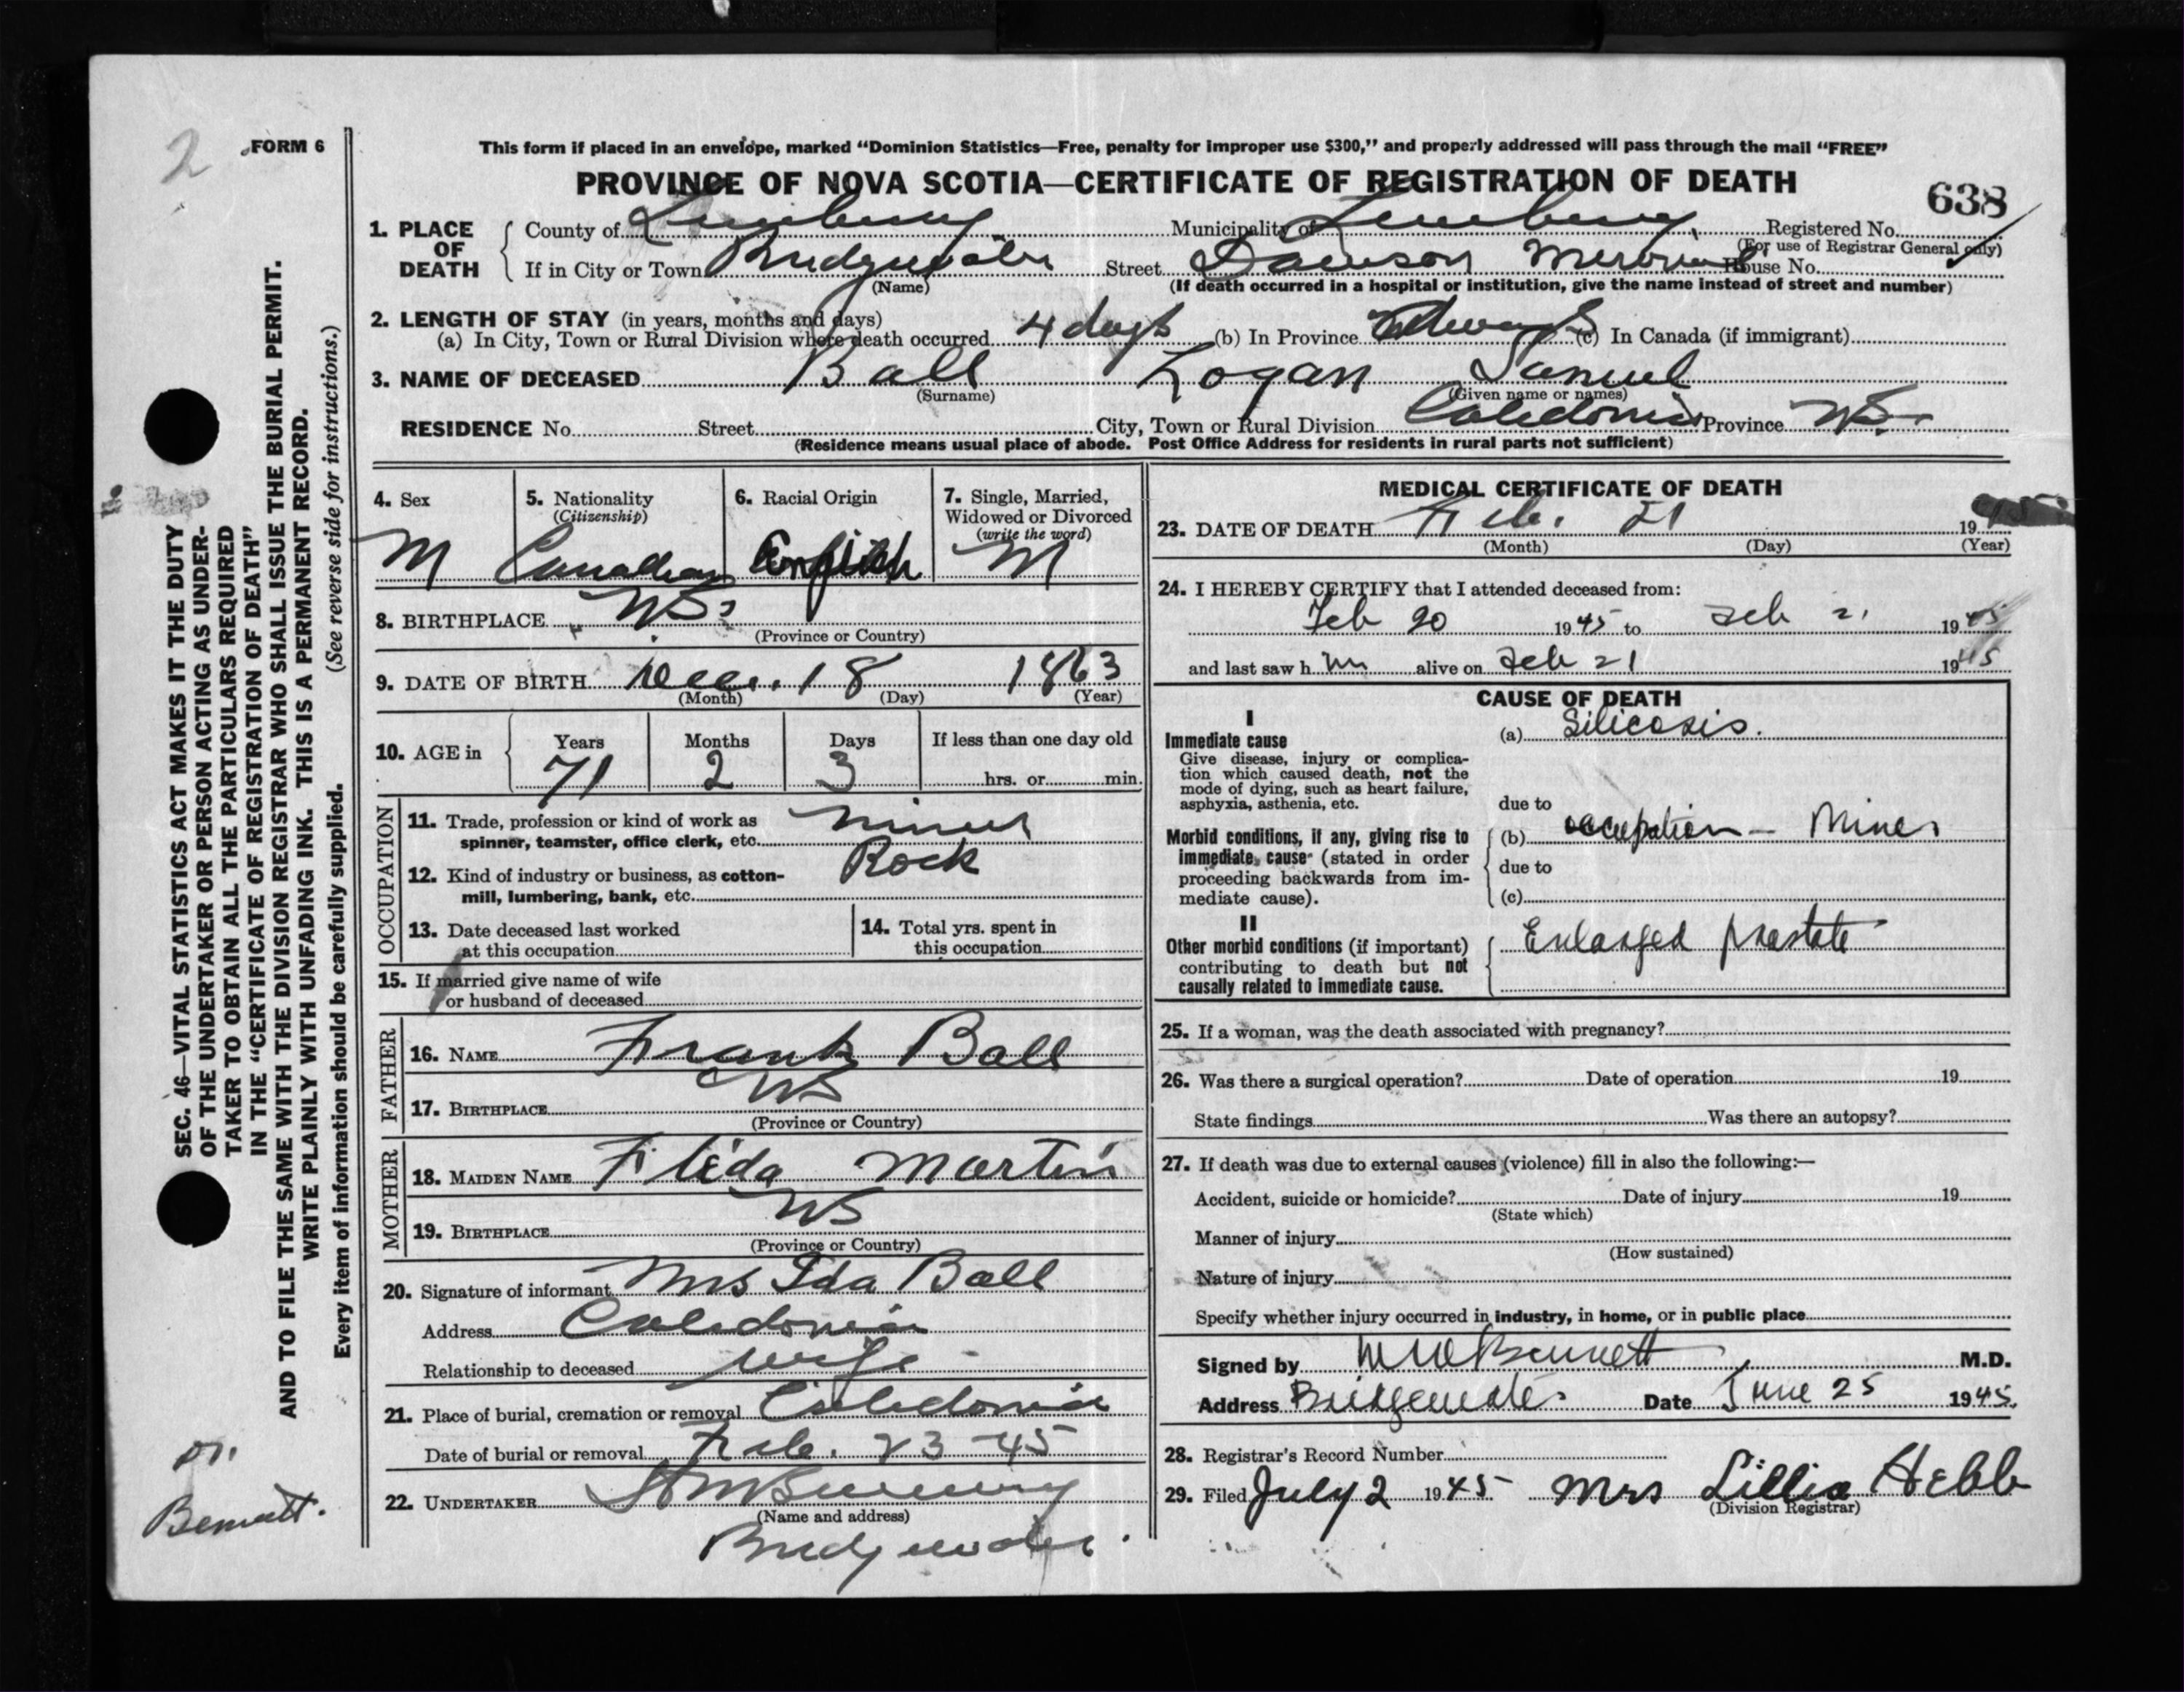 2
FORM 6
This form if placed in an envelope, marked "Dominion Statistics—Free, penalty for improper use $300," and properly addressed will pass through the mail "FREE"
PROVINCE OF NOVA SCOTIA—CERTIFICATE OF REGISTRATION OF DEATH
638
1. PLACE OF DEATH
County of Lunenburg Municipality of Lunenburg Registered No.
(For use of Registrar General only)
If in City or Town Bridgewater Street Dawson Memorial House No.
(Name) (If death occurred in a hospital or institution, give the name instead of street and number)
2. LENGTH OF STAY (in years, months and days)
(a) In City, Town or Rural Division where death occurred 4 days (b) In Province Always (c) In Canada (if immigrant)
3. NAME OF DECEASED Ball Logan Samuel
(Surname) (Given name or names)
RESIDENCE No. Street City, Town or Rural Division Caledonia Province NS.
(Residence means usual place of abode. Post Office Address for residents in rural parts not sufficient)
4. Sex M
5. Nationality (Citizenship) Canadian
6. Racial Origin English
7. Single, Married, Widowed or Divorced (write the word) M
8. BIRTHPLACE NS.
(Province or Country)
9. DATE OF BIRTH Dec. 18 1863
(Month) (Day) (Year)
10. AGE in Years 71 Months 2 Days 3 If less than one day old hrs. or min.
OCCUPATION
11. Trade, profession or kind of work as spinner, teamster, office clerk, etc. Miner
12. Kind of industry or business, as cotton-mill, lumbering, bank, etc. Rock
13. Date deceased last worked at this occupation
14. Total yrs. spent in this occupation
15. If married give name of wife or husband of deceased
FATHER
16. NAME Frank Ball
17. BIRTHPLACE NS
(Province or Country)
MOTHER
18. MAIDEN NAME Martin
19. BIRTHPLACE NS
(Province or Country)
20. Signature of informant Mrs Ida Ball
Address Caledonia
Relationship to deceased wife
21. Place of burial, cremation or removal Caledonia
Date of burial or removal Feb. 23-45
22. UNDERTAKER
(Name and address)
Bridgewater.
MEDICAL CERTIFICATE OF DEATH
23. DATE OF DEATH Feb. 21 1945
(Month) (Day) (Year)
24. I HEREBY CERTIFY that I attended deceased from:
Feb 20 1945 to Feb 21 1945
and last saw h im alive on Feb 21 1945
CAUSE OF DEATH
I
Immediate cause
Give disease, injury or complication which caused death, not the mode of dying, such as heart failure, asphyxia, asthenia, etc.
(a) Silicosis.
due to
Morbid conditions, if any, giving rise to immediate cause (stated in order proceeding backwards from immediate cause).
(b) occupation - Miner
due to
(c)
II
Other morbid conditions (if important) contributing to death but not causally related to immediate cause.
Enlarged prostate
25. If a woman, was the death associated with pregnancy?
26. Was there a surgical operation? Date of operation 19
State findings Was there an autopsy?
27. If death was due to external causes (violence) fill in also the following:—
Accident, suicide or homicide? Date of injury 19
(State which)
Manner of injury
(How sustained)
Nature of injury
Specify whether injury occurred in industry, in home, or in public place
Signed by Bennett M.D.
Address Bridgewater Date June 25 1945.
28. Registrar's Record Number
29. Filed July 2 1945 Mrs Lillia Hebb
(Division Registrar)
SEC. 46—VITAL STATISTICS ACT MAKES IT THE DUTY
OF THE UNDERTAKER OR PERSON ACTING AS UNDER-
TAKER TO OBTAIN ALL THE PARTICULARS REQUIRED
IN THE "CERTIFICATE OF REGISTRATION OF DEATH"
AND TO FILE THE SAME WITH THE DIVISION REGISTRAR WHO SHALL ISSUE THE BURIAL PERMIT.
WRITE PLAINLY WITH UNFADING INK. THIS IS A PERMANENT RECORD.
Every item of information should be carefully supplied. (See reverse side for instructions.)
Dr.
Bennett.